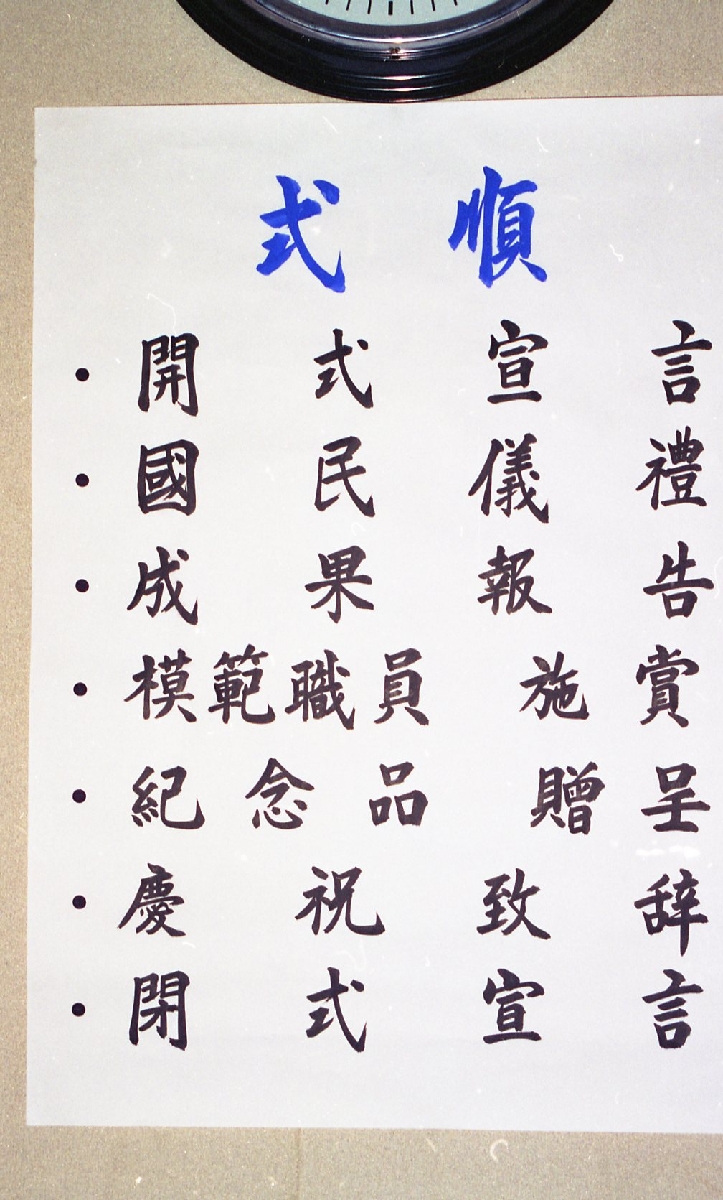 式順
開式宣言
國民儀禮
成果報告
模範職員 施賞
紀念品 贈呈
慶祝致辞
閉式宣言